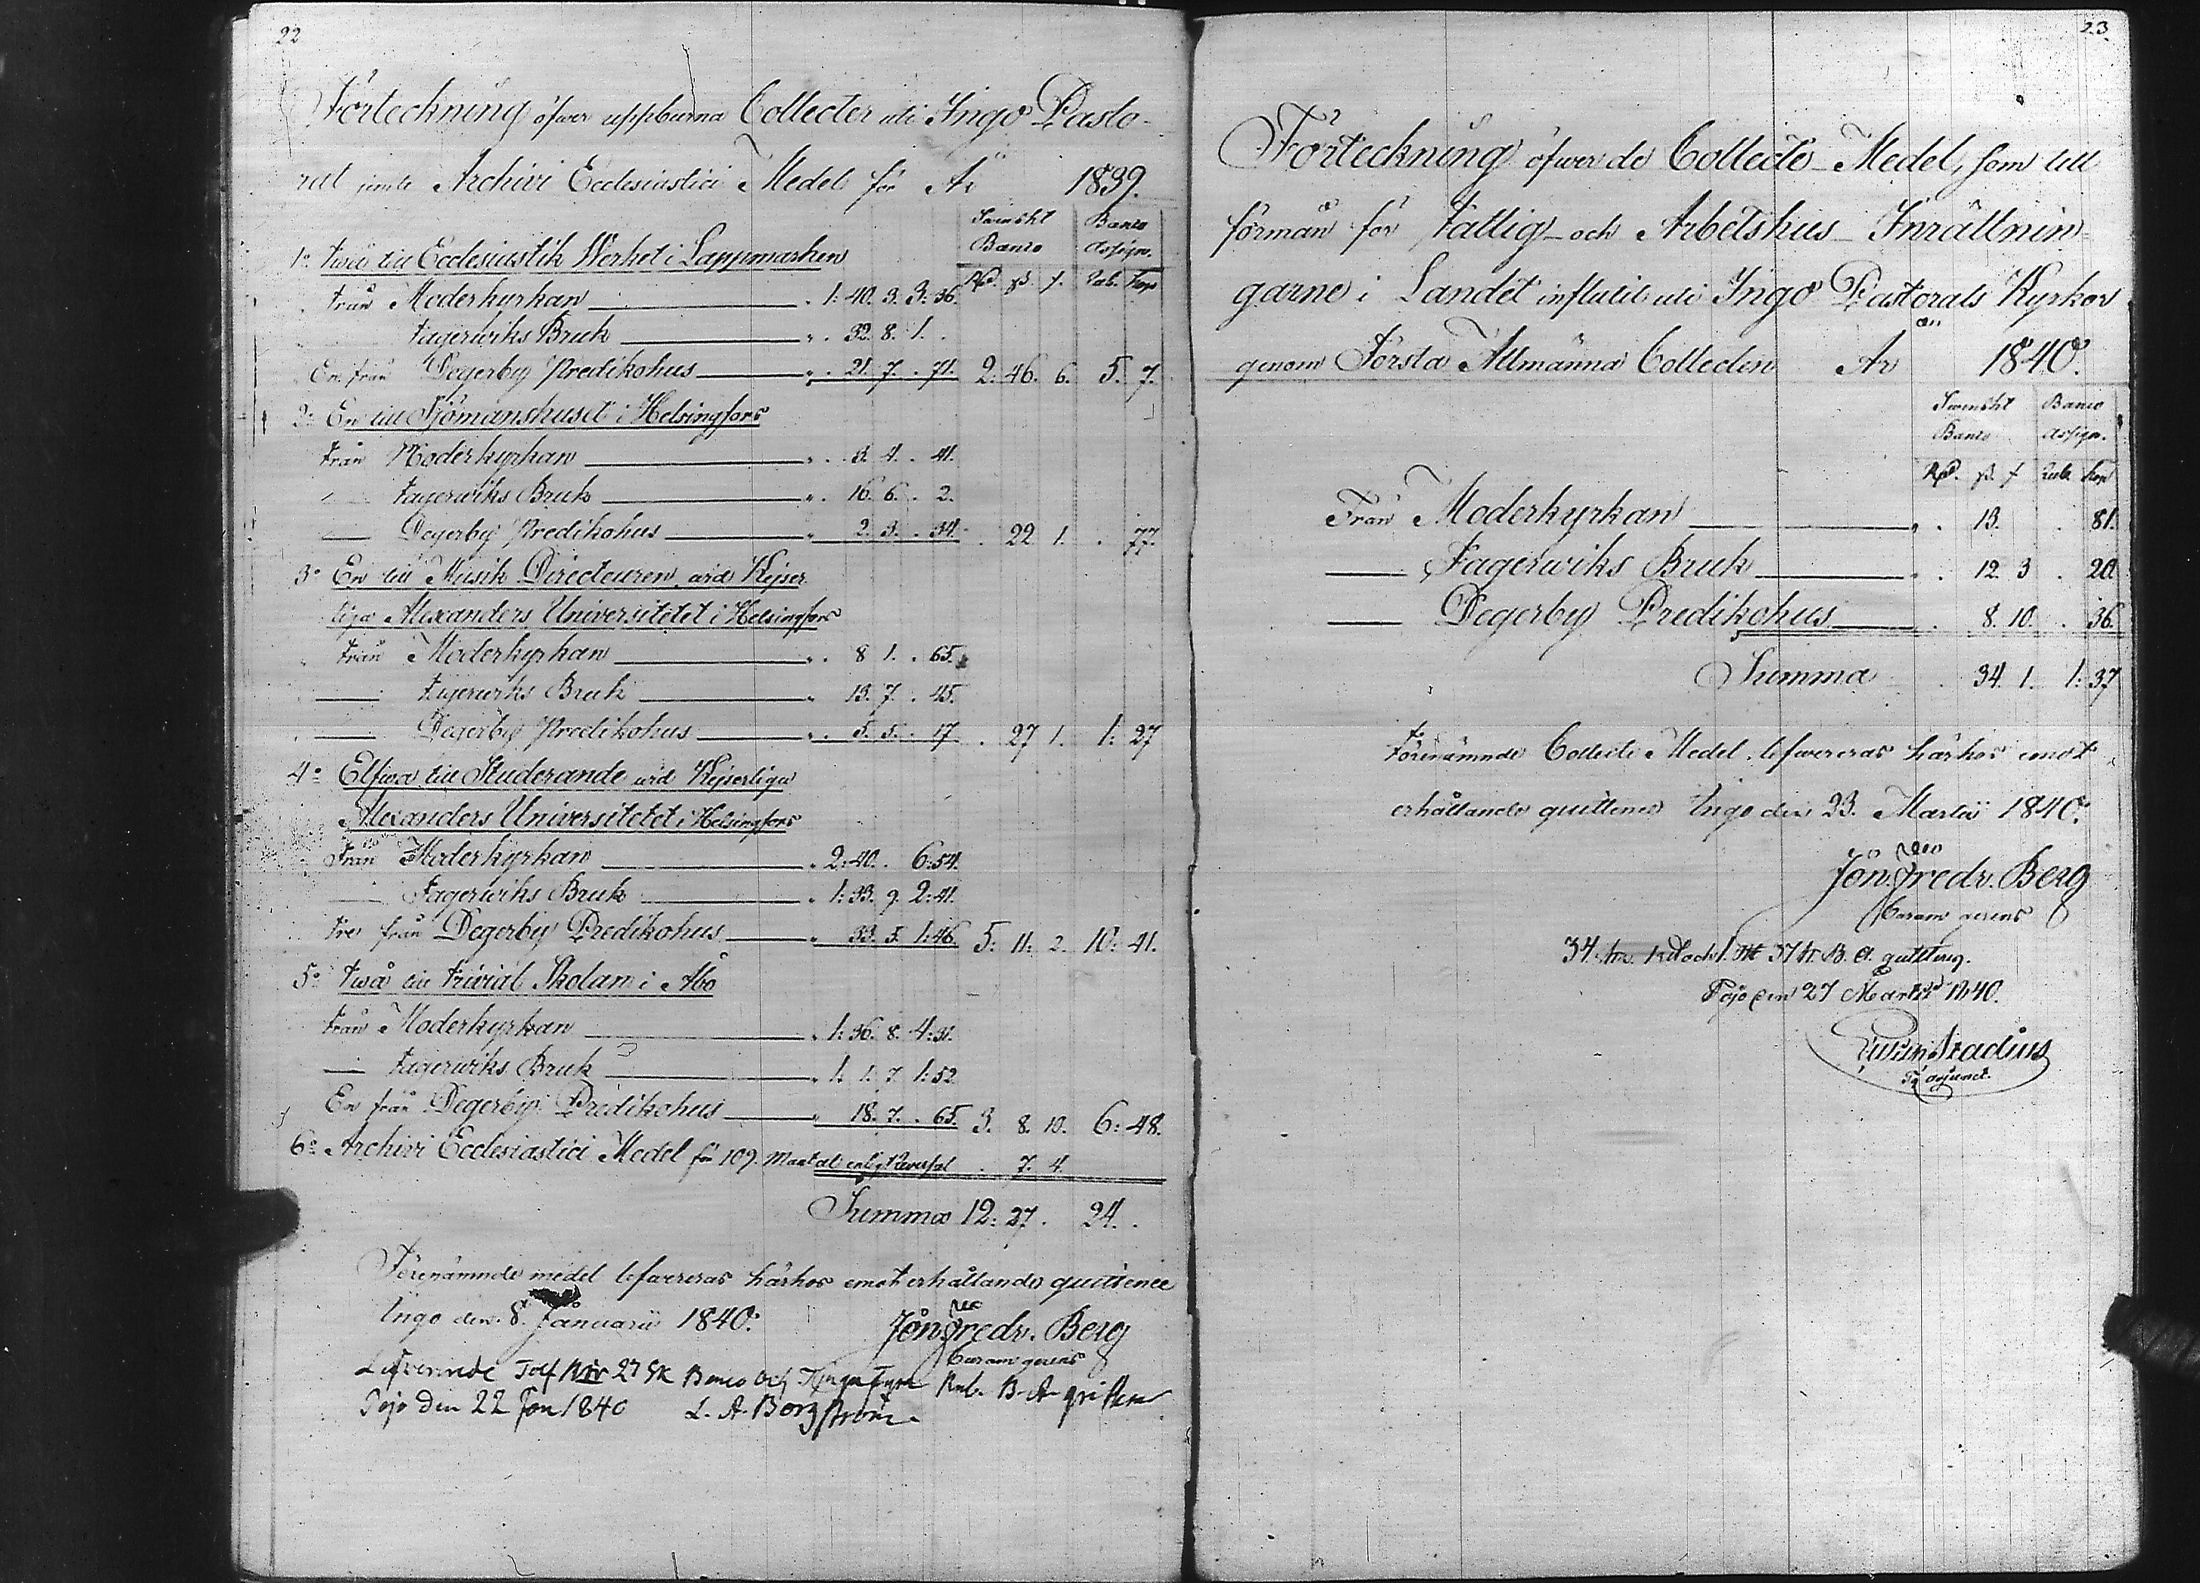 22
Förteckning öfwer uppburna Collecter uti Ingo Pasto-
rat jemte Archivi Ecclesiastici Medel för År 1839.
Swenskt Banco
Banco Assign.
Rd. ß. f. Rub. Kop
1o Twå till Ecclesiastik Werket i Lappmarken
Från Moderkyrkan 1: 40. 3. 3: 36.
Fagerwiks Bruk 32. 8. 1.
En från Degerby Predikohus 21. 7. 71. 2: 46. 6. 5. 7.
2o En till Sjömanshuset i Helsingfors
Från Moderkyrkan 3. 4. 41.
Fagerwiks Bruk 16. 6. 2.
Degerby Predikohus 2. 3. 34. 22 1. 77.
3o En till Musik Directeuren wid Kejser
liga Alexanders Universitetet i Helsingfors
Från Moderkyrkan 8 1. 65.
Fagerwiks Bruk 13. 7. 45.
Degerby Predikohus 5. 5. 17 27 1. 1: 27
4o Elfwa till Studerande wid Kejserliga
Alexanders Universitetet i Helsingfors
Från Moderkyrkan 2: 40. 6: 54.
Fagerwiks Bruk 1: 33. 9. 2: 41.
Tre från Degerby Predikohus 33. 5. 1: 46. 5: 11: 2. 10: 41.
5o Twå till Trivial Skolan i Åbo
Från Moderkyrkan 1: 36. 8. 4: 31.
Fagerwiks Bruk 1: 1: 7. 1: 52.
En från Degerby Predikohus 18. 7. 65. 3. 8. 10. 6: 48.
6o Archivi Ecclesiastici Medel för 109. Matal enligt Reversal 7. 4.
Summa 12: 27. 24.
Förenämnde medel lefwereras härhos emot erhållande quittence
Ingo den 8. Januarii 1840.
Jon. Fredr. Berg
Curam gerens
Lefvererade Tolf Rdr 27 sk Banco och Tjugufyra Rub. B. A. qvitteras
Pojo Den 22 Jan 1840 L. A. Borgström.
23.
Förteckning öfwer de Collecte-Medel, som till
förmån för Fattig- och Arbetshus-Inrättnin-
garne i Landet influtit uti Ingo Pastorats Kyrkor
genom Första Allmänna Collecten År 1840.
Swenskt Banco
Banco Assign.
Rd. ß. f Rub. Kop
Från Moderkyrkan 13. 81.
Fagerwiks Bruk 12. 3 20
Degerby Predikohus 8. 10. 36.
Summa 34. 1. 1: 37
Förenämnde Collecte Medel lefwereras härhos emot
erhållande quittence Ingo den 23. Martii 1840.
Jon. Fredr. Berg
Curam gerens
34 1 och 1 37 B. A. quitteras.
Pojo den 27 Martii 1840.
adjunct.